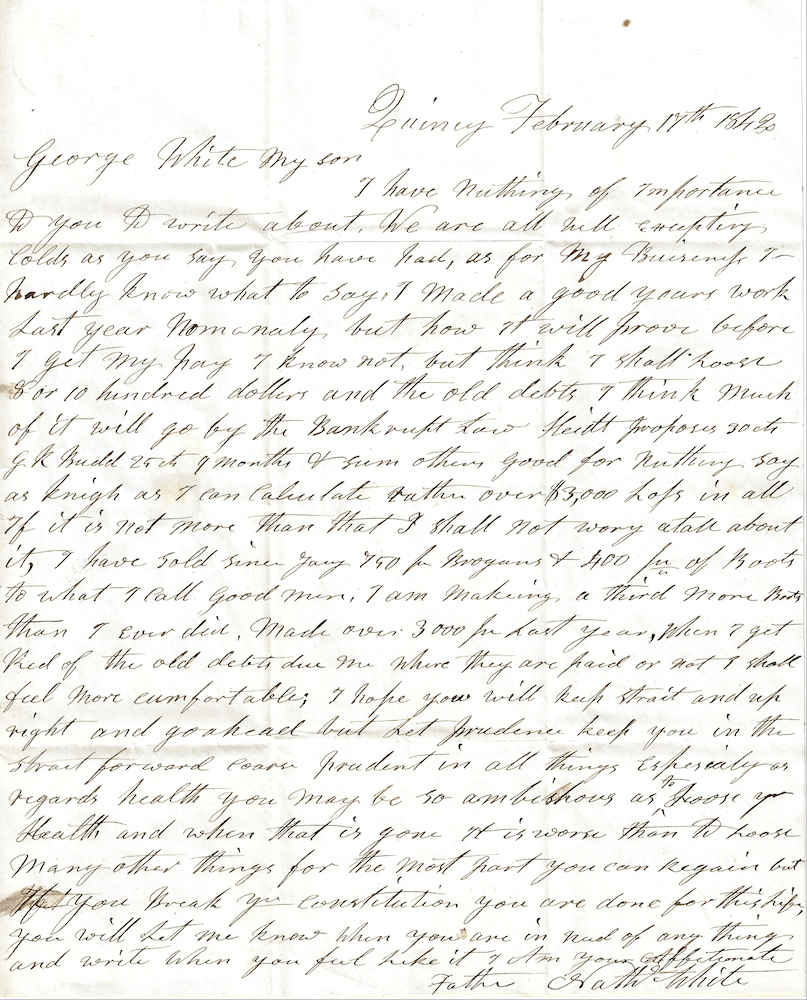 Quincy February 17th 1842
George White My son
I have Nuthing of Importance
to you to write about. We are all well excepting
Colds as you say you have had, as for My Buisness I
hardly know what to say, I Made a good years work
Last year Nomanaly but how it will prove before
I get My pay I know not, but think I shall Loose
8 or 10 hundred dollers and the old debts I think Much
of it will go by the Bankrupt Law proposes 30 cts
G. K. Budd 25 cts 9 months & sum others Good for Nuthing say
as knigh as I can Calculate rather over $3,000 Loss in all
If it is not more than that I shall not wory atall about
it, I have sold since Jany 750 pr Brogans & 400 pr of Boots
to what I call Good men, I am Makeing a third More Boots
than I Ever did, Made over 3000 pr Last year, when I get
Red of the old debts due me where they are paid or not I shall
feel More cumfortable; I hope you will keep strait and up
right and goahead but Let prudence keep you in the
strait forward coarse prudent in all things Especialy as
regards health you may be so ambishous as to Loose yr
Health and when that is gone it is worse than to Loose
Many other things for the Most part you can Regain but
If you Break yr constitution you are done for this Life,
you will Let me know when you are in need of any thing
and write when you feel Like it I Am your Affectinate
Father Nathl White